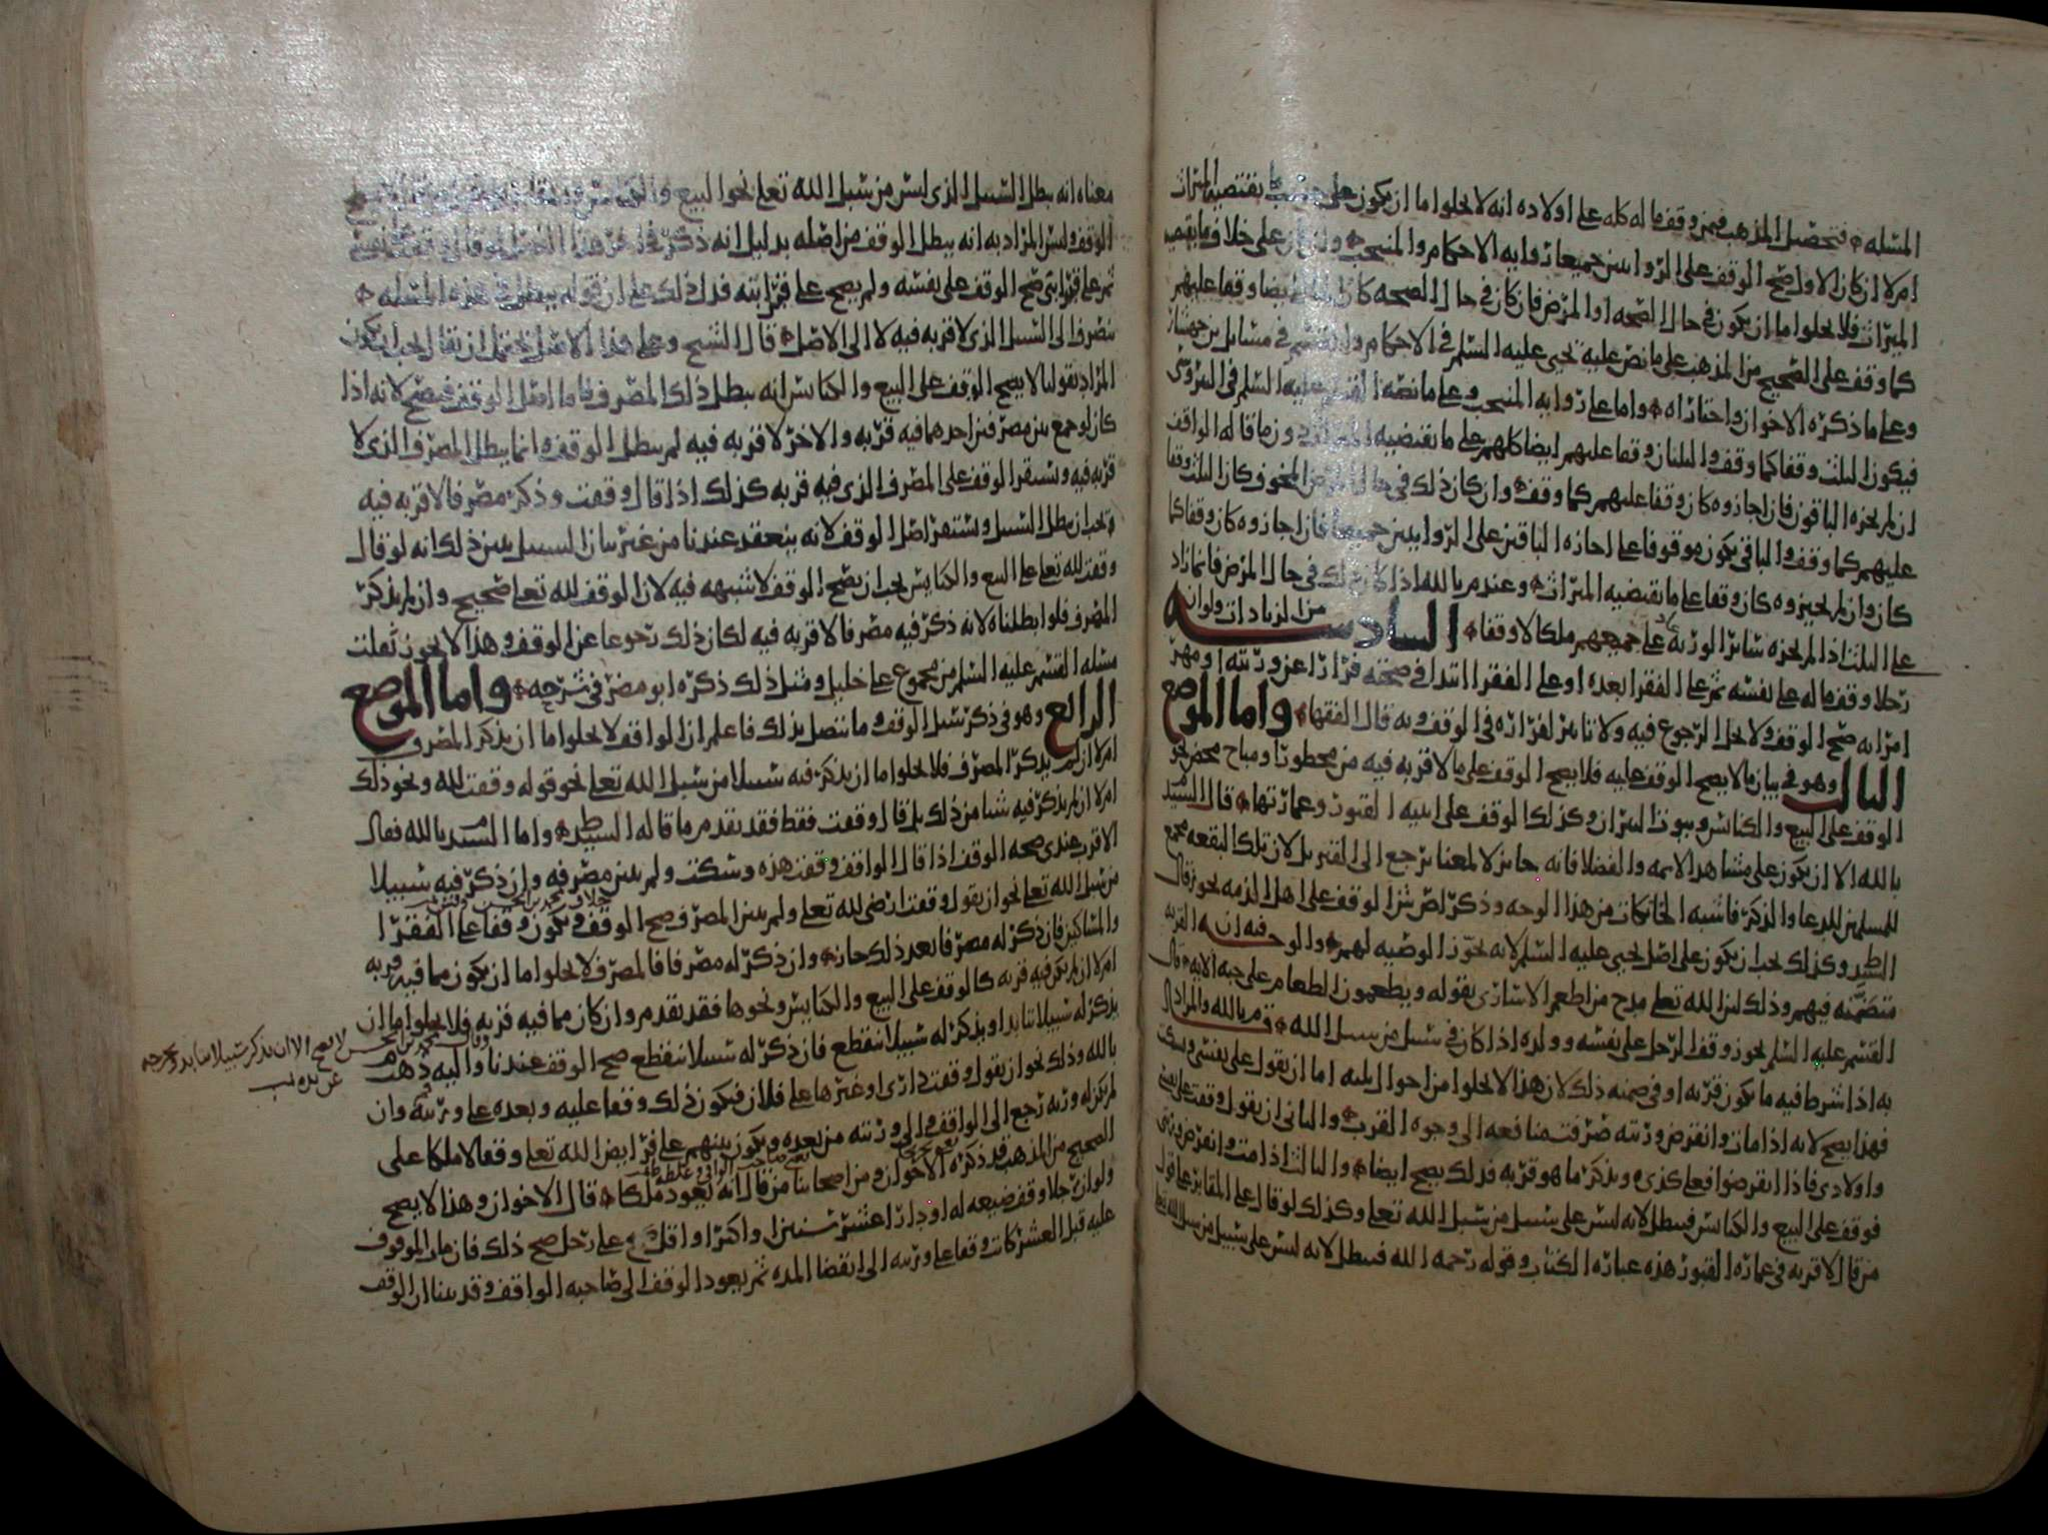 المسله فتحصيل المذهب فيمن وقف ماله كله على اولاده انه لا يخلوا اما ان يكون على حسب ما يقتضيه الميراث
ام لا ان كان الاول صح الوقف على الروايتين جميعا رواية الاحكام والمنتخب وان كان على خلاف ما يقتضيه
الميراث فلا يخلوا اما ان يكون في حال الصحه او المرض فان كان في حال الصحه كان ايضا وقفا عليهم
كما وقف على الصحيح من المذهب على ما نص عليه يحيى عليه السلم في الاحكام والقسم في مسايل
وعلى ما ذكره الاخوان واختاراه واما على رواية المنتخب وعلى ما نصه القسم عليه السلم في
فيكون الثلث وقفا كما وقف والثلثان وقفا عليهم ايضا كلهم على ما يقتضيه الميراث دون ما قاله الواقف
ان لم يجزه الباقون فان اجازوه كان وقفا عليهم كما وقف وان كان ذلك في حال المرض المخوف كان الثلث وقفا
عليهم كما وقف والباقي يكون موقوفا على اجازه الباقين على الروايتين جميعا فان اجازوه كان وقفا كما
كان وان لم يجيزوه كان وقفا على ما يقتضيه الميراث وعند م بالله اذا كان ذلك في حال المرض فما زاد
على الثلث اذا لم يجزه سائر الورثه على جميعهم ملكا لا وقفا السادسه من الزيادات ولو ان
رجلا وقف ماله على نفسه ثم على الفقرا بعده او على الفقرا ابتدا في صحته فرارا عن ورثته او مهر
امراته صح الوقف ولا يحل الرجوع فيه ولا تاثير لفراره في الوقف وبه قال الفقها واما الموضع
الثالث وهو في بيان ما لا يصح الوقف عليه فلا يصح الوقف على ما لا قربه فيه من محظور او مباح محض نحو
الوقف على البيع والكنائس وبيوت النيران وكذلك الوقف على ابنيه القبور وعمارتها قال السيد
بالله الا ان يكون على مشاهد الايمه والفضلا فانه جائز لا لمعنا يرجع الى القبر بل لان تلك البقعه مجمع
للمسلمين للدعا والذكر فاشبه الخانكات من هذا الوجه وذكر لص ش ان الوقف على اهل الذمه يجوز قال
السيد ط وكذلك يجب ان يكون على اصل يحيى عليه السلم لانه يجوز الوصيه لهم والوجه فيه ان القربه
متضمنه فيهم وذلك لان الله تعلى مدح من اطعم الاسارى بقوله ويطعمون الطعام على حبه الايه قال
القسم عليه السلم يجوز وقف الرجل على نفسه وولده اذا كان في سبيل من سبيل الله قم بالله والمراد
به اذا شرط فيه ما يكون قربه او في ضمنه ذلك لان هذا لا يخلوا من احوال ثلثه اما ان يقول على نفسي وسكت
فهذا يصح لانه اذا مات وانقرض ورثته صرفت منافعه الى وجوه القرب والثاني ان يقول وقفت على نفسي
واولادي فاذا انقرضوا فعلى كذى ويذكر ما هو قربه فذلك يصح ايضا والثالث اذا مت وانقرض ورثتي
فوقف على البيع والكنائس فيبطل لانه ليس على سبيل من سبل الله تعلى وكذلك لو قال على المقابر على قول
من قال لا قربه في عمارة القبور هذه عبارة الكتاب وقوله رحمه الله فيبطل لانه ليس على سبيل من سبل الله تعلى
معناه انه يبطل السبيل الذي ليس من سبيل الله تعلى نحو البيع والكنائس
الوقف وليس المراد به انه يبطل الوقف من اصله بدليل انه ذكر في اخر هذا
ثم على قرابتي صح الوقف على نفسه ولم يصح على قرابته فدل ذلك على ان قوله يبطل في هذه المسله
ينصرف الى السبيل الذي لا قربه فيه لا الى الاصل قال الشيخ وعلى هذا الاصل يحتمل ان يقال يجب ان يكون
المراد بقولنا لا يصح الوقف على البيع والكنائس انه يبطل ذلك المصرف فاما اصل الوقف فيصح لانه اذا
كان لو جمع بين مصرفين احدهما فيه قربه والاخر لا قربه فيه لم يبطل الوقف وانما يبطل المصرف الذي لا
قربه فيه ويستقر الوقف على المصرف الذي فيه قربه كذلك اذا قال وقفت وذكر مصرفا لا قربه فيه
يجب ان يبطل السبيل ويستمر اصل الوقف لانه ينعقد عندنا من غير بيان السبيل يبين ذلك انه لو قال
وقفت لله تعلى على البيع والكنايس يجب ان يصح الوقف لا شبهه فيه لان الوقف لله تعلى صحيح وان لم يذكر
المصرف فلو ابطلناه لانه ذكر فيه مصرفا لا قربه فيه لكان ذلك رجوعا عن الوقف وهذا لا يجوز ثعلت
مسله القسم عليه السلم من مجموع علي خليل ومثل ذلك ذكره ابو مضر في شرحه واما الموضع
الرابع وهو في ذكر سبل الوقف وما يتصل بذلك فاعلم ان الواقف لا يخلوا اما ان يذكر المصرف
ام لا ان لم يذكر المصرف فلا يخلوا اما ان يذكر فيه سبيلا من سبل الله تعلى نحو قوله وقفت لله ونحو ذلك
ام لا ان لم يذكر فيه شيا من ذلك بل قال وقفت فقط فقد تقدم ما قاله السيد ط واما السيد م بالله فقال
الاقرب عندى صحه الوقف اذا قال الواقف وقفت هذه وسكت ولم يبين مصرفه وان ذكر فيه سبيلا
من سبل الله تعلى نحو ان يقول وقفت ارضى لله تعلى ولم يبين المصرف صح الوقف ويكون وقفا على الفقرا
والمساكين فان ذكر له مصرفا بعد ذلك جاز وان ذكر له مصرفا فالمصرف لا يخلوا اما ان يكون مما فيه قربه
ام لا ان لم يكن فيه قربه كالوقف على البيع والكنايس ونحوها فقد تقدم وان كان مما فيه قربه فلا يخلوا اما ان
يذكر له سبيلا متابدا او يذكر له سبيلا منقطع فان ذكر له سبيلا منقطع صح الوقف عندنا واليه ذهب م
بالله وذلك نحو ان يقول وقفت دارى او غيرها على فلان فيكون ذلك وقفا عليه وبعده على ورثته وان
لم يكن له ورثه رجع الى الواقف والى ورثته من بعده ويكون بينهم على فرايض الله تعلى وقفا لا ملكا على
الصحيح من المذهب قد ذكره الاخوان ومن اصحابنا من قال انه يعود ملكا قال الاخوان وهذا لا يصح
ولو ان رجلا وقف ضيعه له او دارا عشر سنين او اكثر او اقل على رجل صح ذلك فان مات الموقوف
عليه قبل العشر كانت وقفا على ورثته الى انقضا المده ثم يعود الوقف الى صاحبه الواقف وقد بينا ان الوقف
وقال محمد بن الحسن لا يصح الا ان يذكر سبيلا متابدا